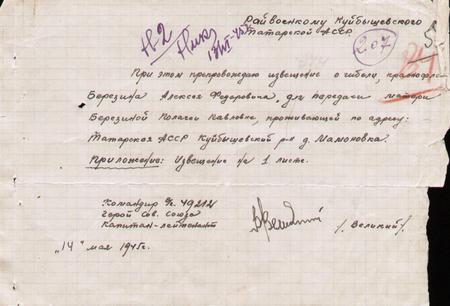 Райвоенкому Куйбышевского
Татарской АССР
207
5
При этом препровождаю извещение о гибели, краснофл.
Березина Алексея Федоровича, для передачи матери
Березиной Пелагеи Павловне, проживающей по адресу:
Татарская АССР Куйбышевский р-н д. Мамоновка.
Приложение: Извещение на 1 листе.
Командир в/ч. 49212
Герой Сов. Союза
Капитан-лейтенант
/. Великий/.
"14" мая 1945г.